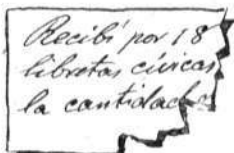 Recibí por 18
libretas cívicas
la cantidad